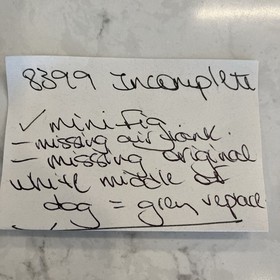 8399 Incomplete
✓ minifig
- missing air tank.
- missing original
white middle of
dog = grey replace